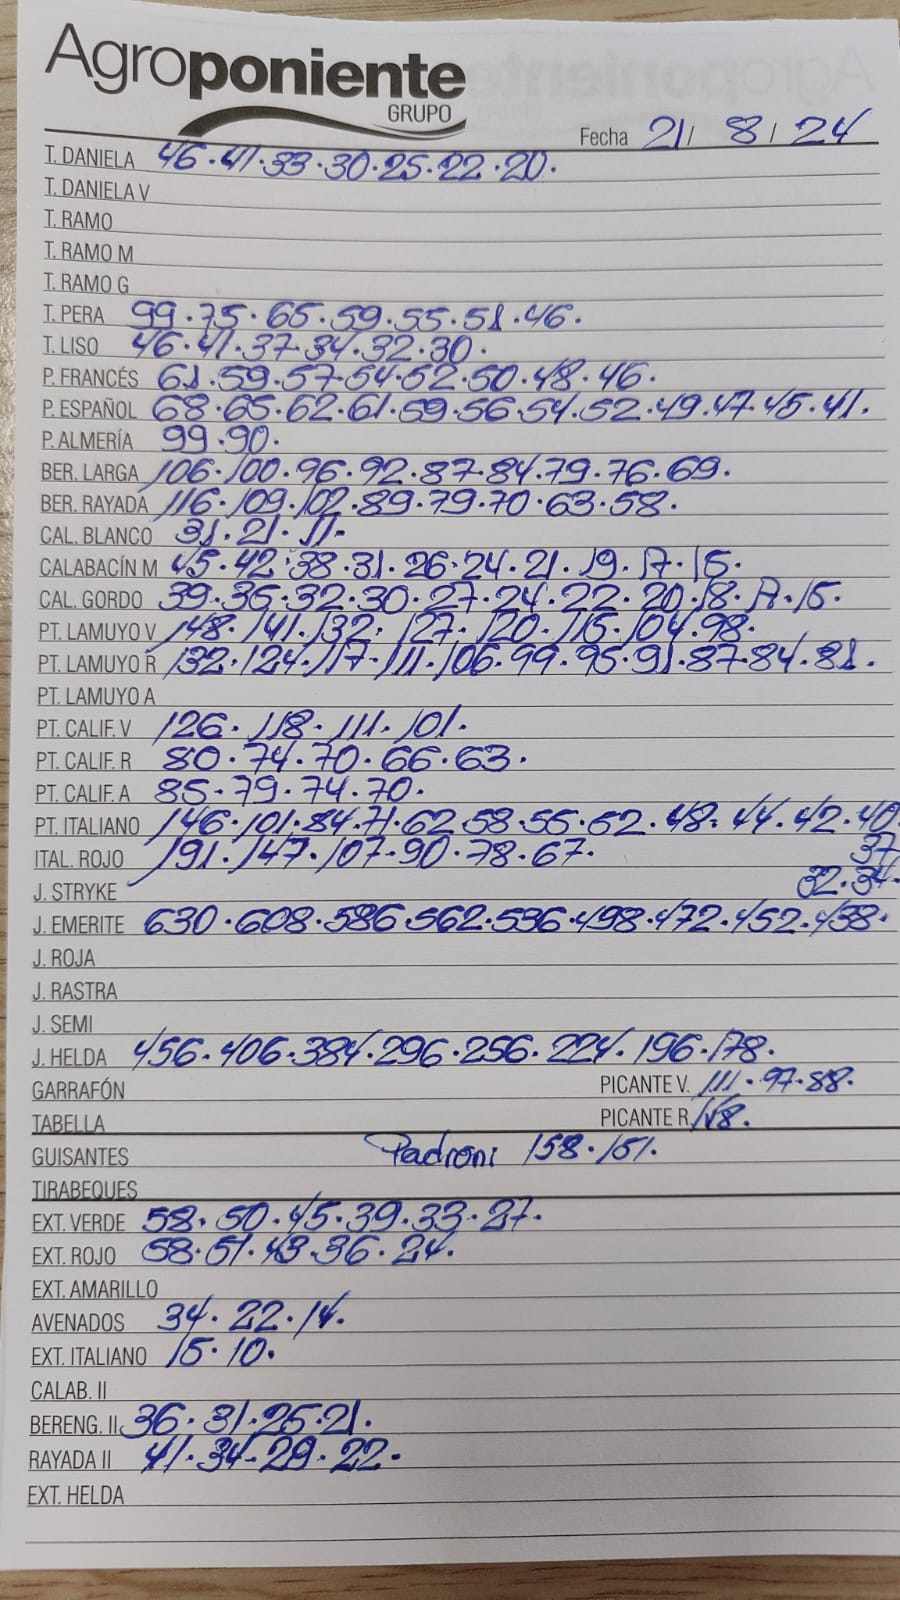 Agroponiente
GRUPO
Fecha 21/ 8/ 24
T. DANIELA 46·41·33·30·25·22·20.
T. DANIELA V
T. RAMO
T. RAMO M
T. RAMO G
T. PERA 99·75·65·59·55·51·46.
T. LISO 46·41·37·34·32·30.
P. FRANCÉS 61·59·57·54·52·50·48·46.
P. ESPAÑOL 68·65·62·61·59·56·54·52·49·47·45·41.
P. ALMERÍA 99·90.
BER. LARGA 106·100·96·92·87·84·79·76·69.
BER. RAYADA 116·109·102·89·79·70·63·58.
CAL. BLANCO 31·21·11.
CALABACÍN M 45·42·38·31·26·24·21·19·17·15.
CAL. GORDO 39·35·32·30·27·24·22·20·18·17·15.
PT. LAMUYO V 148·141·132·127·120·115·104·98.
PT. LAMUYO R 132·124·117·111·106·99·95·91·87·84·81.
PT. LAMUYO A
PT. CALIF. V 126·118·111·101.
PT. CALIF. R 80·74·70·66·63.
PT. CALIF. A 85·79·74·70.
PT. ITALIANO 146·101·84·71·62·58·55·52·48·44·42·40
ITAL. ROJO 191·147·107·90·78·67. 37
J. STRYKE 32·34.
J. EMERITE 630·608·586·562·536·498·472·452·438.
J. ROJA
J. RASTRA
J. SEMI
J. HELDA 456·406·384·296·256·224·196·178.
GARRAFÓN PICANTE V. 111·97·88.
TABELLA PICANTE R 148.
GUISANTES Padroni 158·151.
TIRABEQUES
EXT. VERDE 58·50·45·39·33·27.
EXT. ROJO 58·51·43·36·24.
EXT. AMARILLO
AVENADOS 34·22·14.
EXT. ITALIANO 15·10.
CALAB. II
BERENG. II 36·31·25·21.
RAYADA II 41·34·29·22.
EXT. HELDA